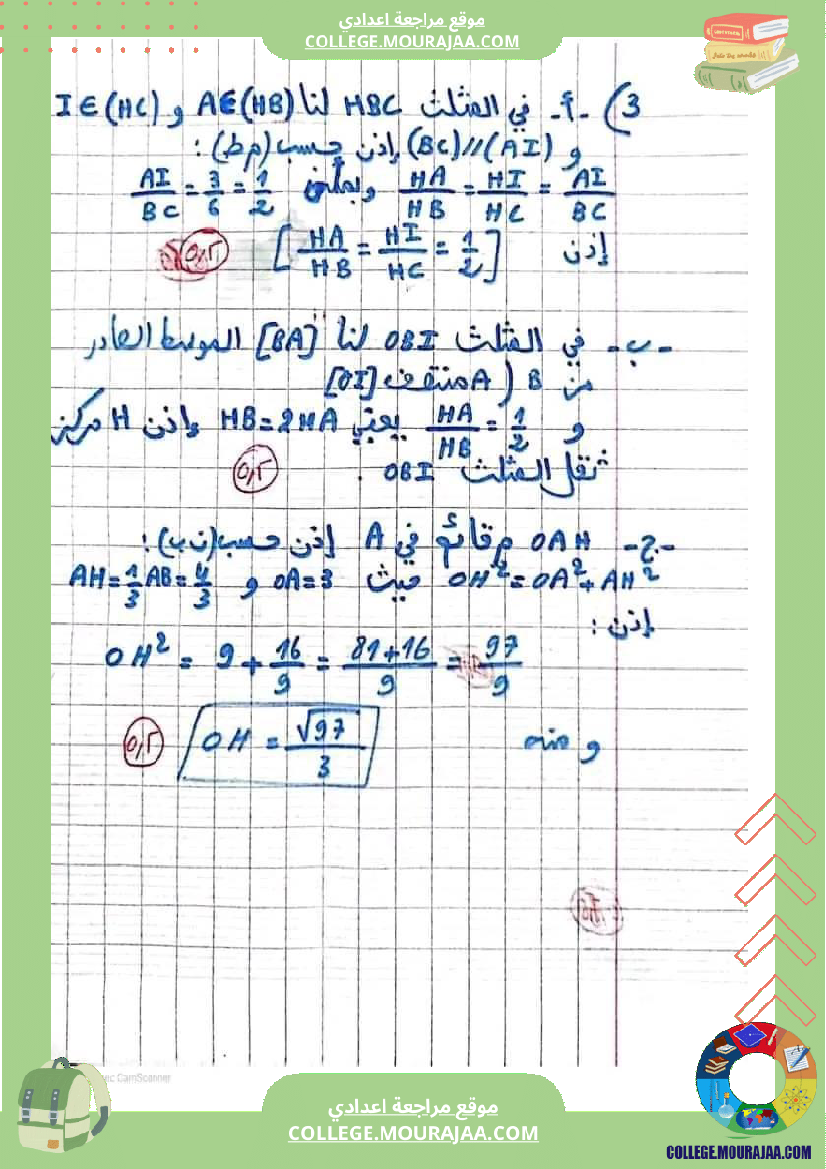 موقع مراجعة اعدادي
COLLEGE.MOURAJAA.COM
3) -أ- في المثلث HBC لنا A∈(HB) و I∈(HC)
و (AI)//(BC) إذن حسب (م ط) :
HA/HB = HI/HC = AI/BC AI/BC = 3/6 = 1/2
إذن [HA/HB = HI/HC = 1/2] 0,5
-ب- في المثلث OBI لنا [BA] الموسط الصادر
من B (A منتصف [OI]
و HA/HB = 1/2 يعني HB=2HA وإذن H مركز
ثقل المثلث OBI . 0,5
-ج- OAH م قائم في A إذن حسب (ن ب) :
OH²=OA²+AH² حيث OA=3 و AH=1/3 AB=4/3
إذن :
OH² = 9 + 16/9 = 81+16/9 = 97/9
ومنه OH = √97/3 0,5
CamScanner
موقع مراجعة اعدادي
COLLEGE.MOURAJAA.COM
COLLEGE.MOURAJAA.COM